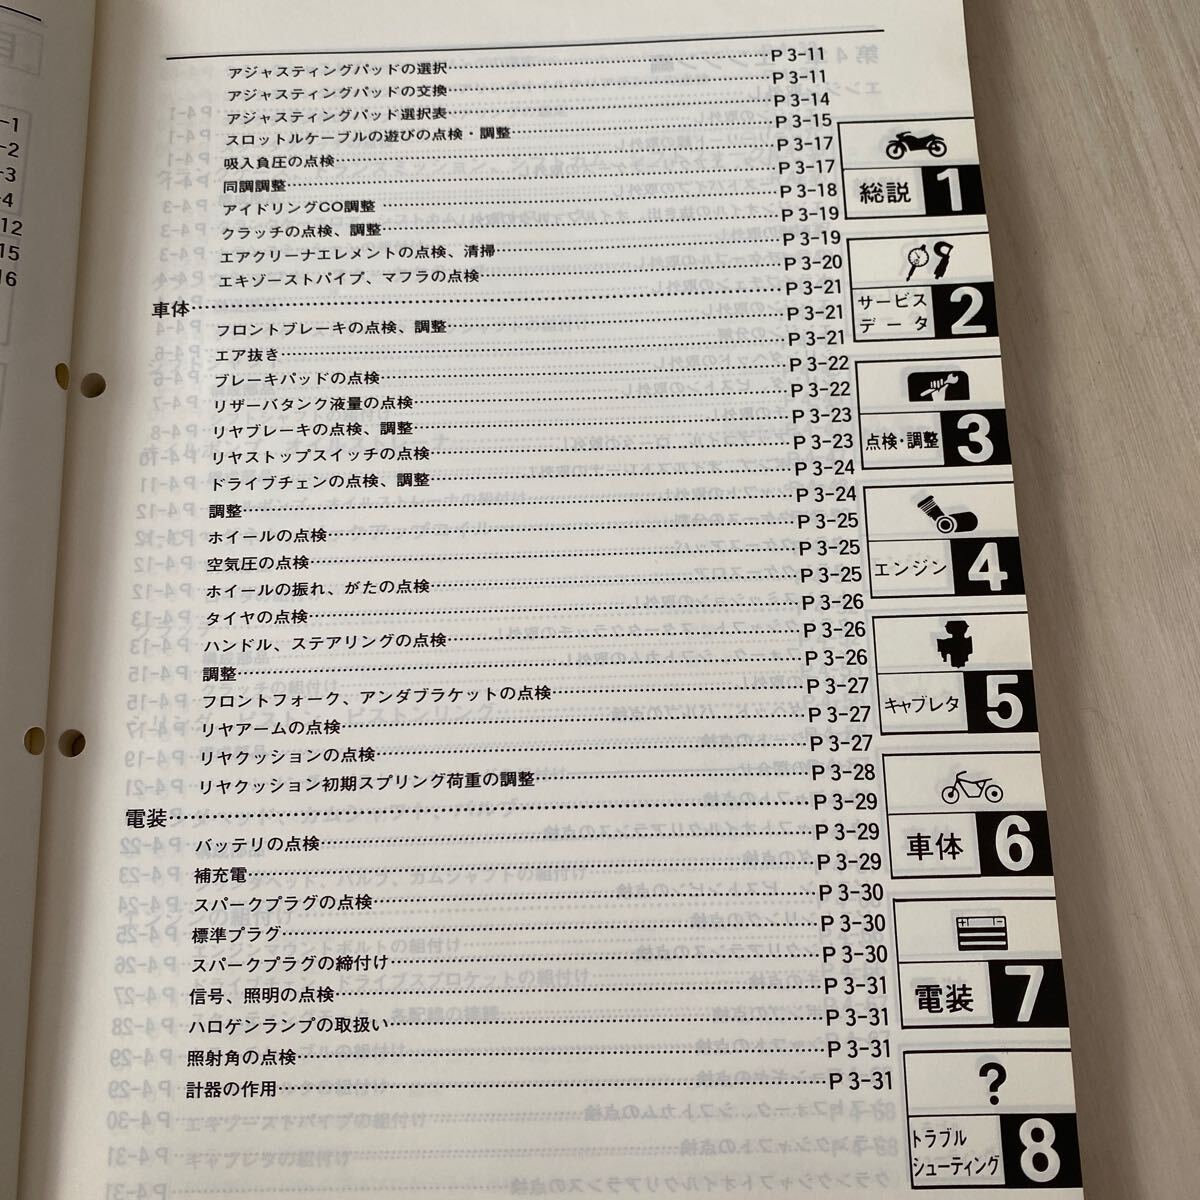 -1
-2
-3
-4
12
15
16
アジャスティングパッドの選択……P 3-11
アジャスティングパッドの交換……P 3-11
アジャスティングパッド選択表……P 3-14
スロットルケーブルの遊びの点検・調整……P 3-15
吸入負圧の点検……P 3-17
同調調整……P 3-17
アイドリングCO調整……P 3-18
クラッチの点検、調整……P 3-19
エアクリーナエレメントの点検、清掃……P 3-19
エキゾーストパイプ、マフラの点検……P 3-20
車体……P 3-21
フロントブレーキの点検、調整……P 3-21
エア抜き……P 3-21
ブレーキパッドの点検……P 3-22
リザーバタンク液量の点検……P 3-22
リヤブレーキの点検、調整……P 3-23
リヤストップスイッチの点検……P 3-23
ドライブチェンの点検、調整……P 3-24
調整……P 3-24
ホイールの点検……P 3-25
空気圧の点検……P 3-25
ホイールの振れ、がたの点検……P 3-25
タイヤの点検……P 3-26
ハンドル、ステアリングの点検……P 3-26
調整……P 3-26
フロントフォーク、アンダブラケットの点検……P 3-27
リヤアームの点検……P 3-27
リヤクッションの点検……P 3-27
リヤクッション初期スプリング荷重の調整……P 3-28
電装……P 3-29
バッテリの点検……P 3-29
補充電……P 3-29
スパークプラグの点検……P 3-30
標準プラグ……P 3-30
スパークプラグの締付け……P 3-30
信号、照明の点検……P 3-31
ハロゲンランプの取扱い……P 3-31
照射角の点検……P 3-31
計器の作用……P 3-31
総説 1
サービスデータ 2
点検・調整 3
エンジン 4
キャブレタ 5
車体 6
電装 7
?
トラブルシューティング 8